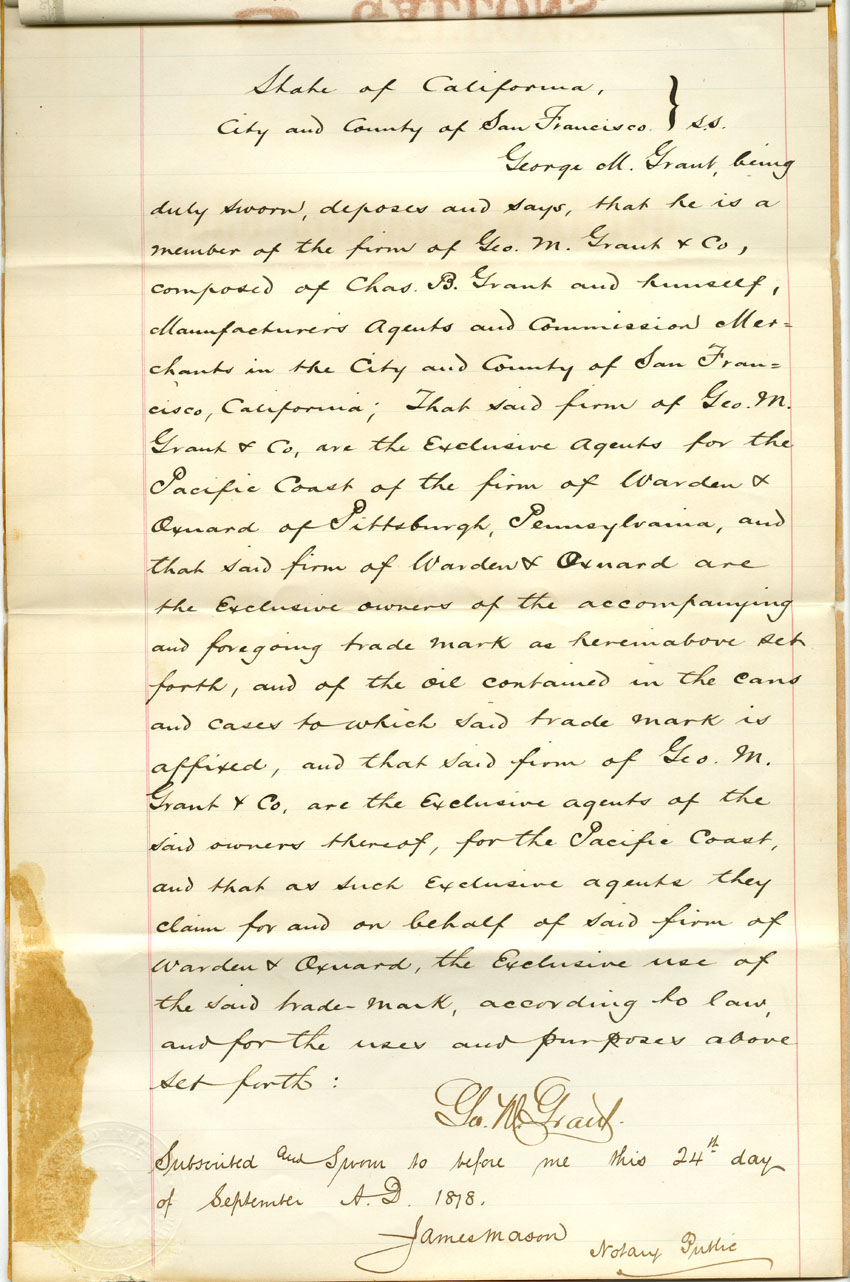 State of California,
City and County of San Francisco. } s.s.
George M. Grant, being
duly sworn, deposes and says, that he is a
member of the firm of Geo. M. Grant & Co,
composed of Chas. B. Grant and himself,
Manufacturers Agents and Commission Mer=
chants in the City and County of San Fran=
cisco, California; That said firm of Geo. M.
Grant & Co, are the Exclusive Agents for the
Pacific Coast of the firm of Warden &
Oxnard of Pittsburgh, Pennsylvania, and
that said firm of Warden & Oxnard are
the Exclusive owners of the accompanying
and foregoing trade mark as hereinabove set
forth, and of the oil contained in the cans
and cases to which said trade mark is
affixed, and that said firm of Geo. M.
Grant & Co, are the Exclusive agents of the
said owners thereof, for the Pacific Coast,
and that as such Exclusive agents they
claim for and on behalf of said firm of
Warden & Oxnard, the Exclusive use of
the said trade-mark, according to law,
and for the uses and purposes above
set forth:
Geo. M. Grant.
Subscribed and Sworn to before me this 24th day
of September A.D. 1878.
James Mason
Notary Public